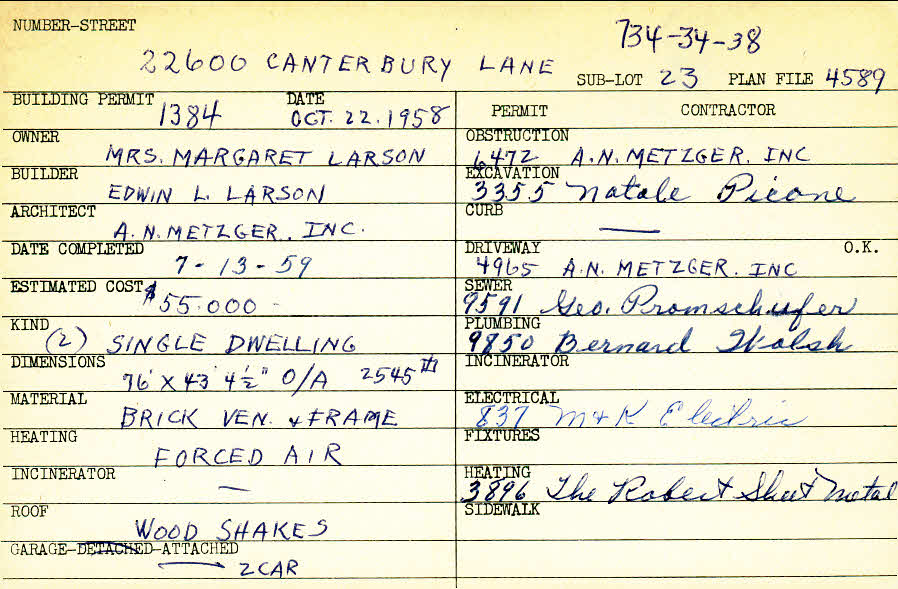 NUMBER-STREET
734-34-38
22600 CANTERBURY LANE
SUB-LOT 23 PLAN FILE 4589
BUILDING PERMIT 1384 DATE OCT. 22. 1958
OWNER MRS. MARGARET LARSON
BUILDER EDWIN L. LARSON
ARCHITECT A.N. METZGER, INC.
DATE COMPLETED 7-13-59
ESTIMATED COST $55.000-
KIND (2) SINGLE DWELLING
DIMENSIONS 76' X 43' 4½" O/A 2545#
MATERIAL BRICK VEN. & FRAME
HEATING FORCED AIR
INCINERATOR —
ROOF WOOD SHAKES
GARAGE-DETACHED-ATTACHED
2 CAR
PERMIT CONTRACTOR
OBSTRUCTION
6472 A.N. METZGER. INC
EXCAVATION
3355 Natale Picone
CURB
—
DRIVEWAY O.K.
4965 A.N. METZGER. INC
SEWER
9591 Geo. Promschufer
PLUMBING
9850 Bernard Walsh
INCINERATOR
ELECTRICAL
837 M+K Electric
FIXTURES
HEATING
3896 The Robert Sheet Metal
SIDEWALK